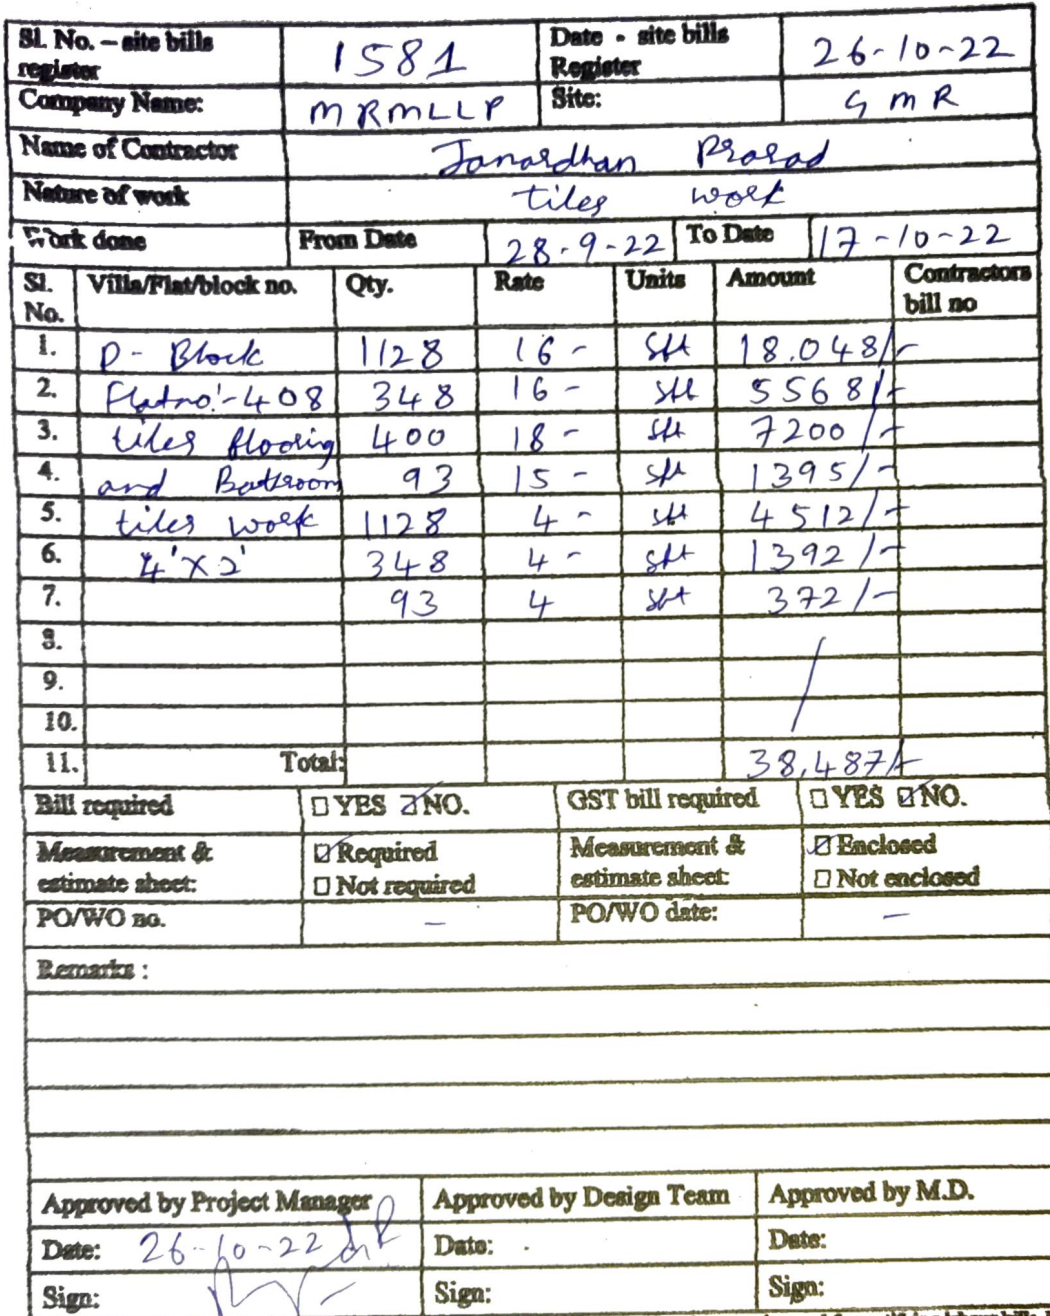 Sl. No. – site bills register 1581 Date - site bills Register 26-10-22
Company Name: MRMLLP Site: GMR
Name of Contractor Janardhan Prasad
Nature of work tiles work
Work done From Date 28-9-22 To Date 17-10-22
Sl. No. Villa/Flat/block no. Qty. Rate Units Amount Contractors bill no
1. D- Block 1128 16- sft 18.048/-
2. Flat no:-408 348 16- sft 5568/-
3. tiles flooring 400 18- sft 7200/-
4. and Bathroom 93 15- sft 1395/-
5. tiles work 1128 4- sft 4512/-
6. 4'x2' 348 4- sft 1392/-
7. 93 4 sft 372/-
8.
9.
10.
11. Total: 38,487/-
Bill required ☐ YES ☑ NO. GST bill required ☐ YES ☑ NO.
Measurement & estimate sheet: ☑ Required ☐ Not required Measurement & estimate sheet: ☑ Enclosed ☐ Not enclosed
PO/WO no. – PO/WO date: –
Remarks :
Approved by Project Manager Approved by Design Team Approved by M.D.
Date: 26-10-22 Date: Date:
Sign: Sign: Sign: